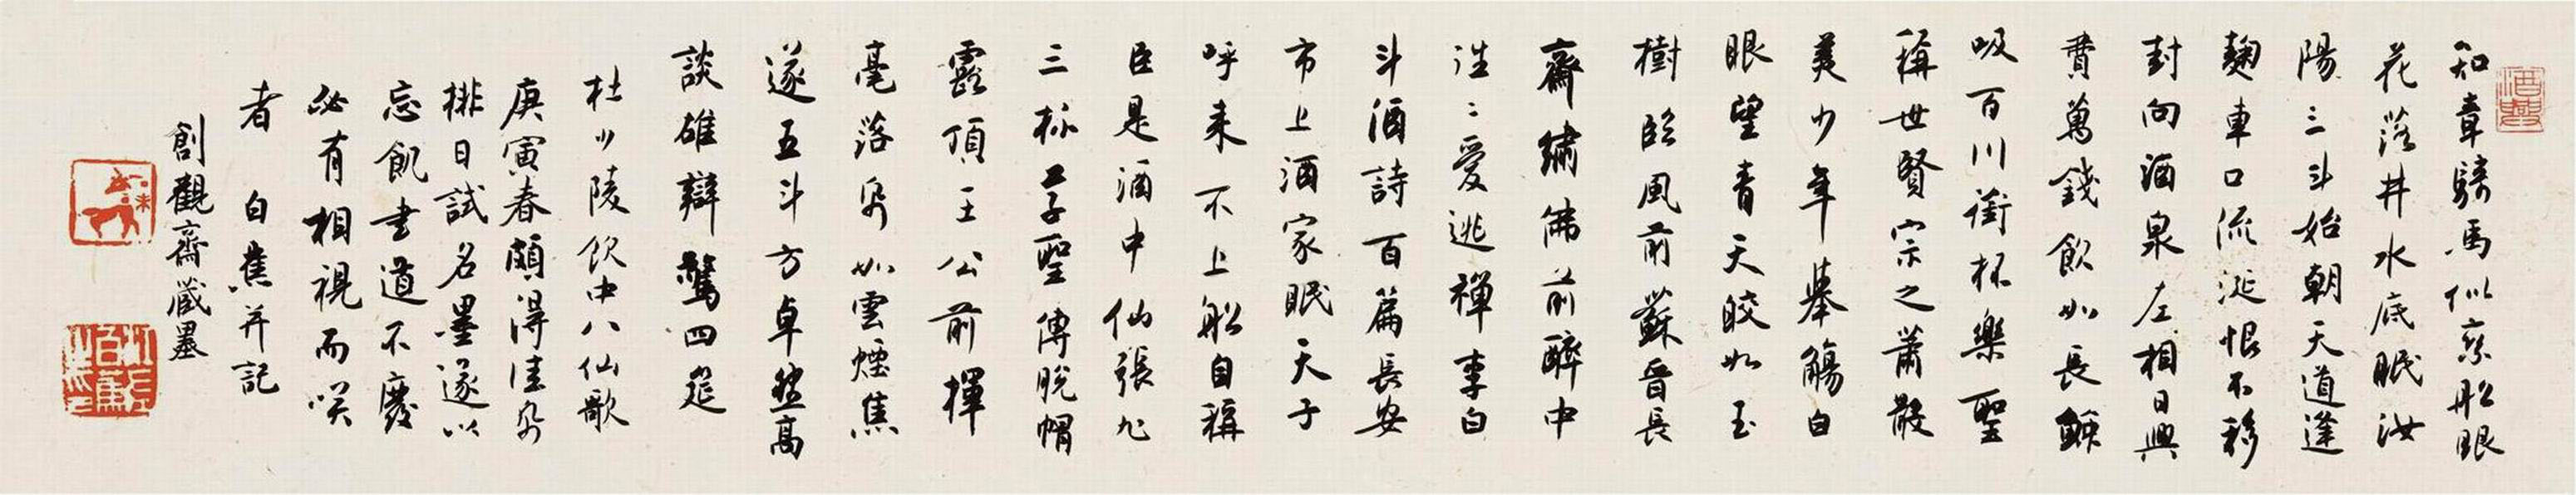 知章騎馬似乘船眼
花落井水底眠汝
陽三斗始朝天道逢
麴車口流涎恨不移
封向酒泉左相日興
費萬錢飲如長鯨
吸百川銜杯樂聖
稱世賢宗之蕭散
美少年舉觴白
眼望青天皎如玉
樹臨風前蘇晉長
齋繡佛前醉中
往〻愛逃禪李白
斗酒詩百篇長安
市上酒家眠天子
呼來不上船自稱
臣是酒中仙張旭
三杯草聖傳脫帽
露頂王公前揮
毫落紙如雲煙焦
遂五斗方卓然高
談雄辯驚四筵
杜少陵飲中八仙歌
庚寅春頗得佳紙
排日試名墨遂以
忘飢書道不廢
必有相視而笑
者 白蕉并記
創觀齋藏墨
未